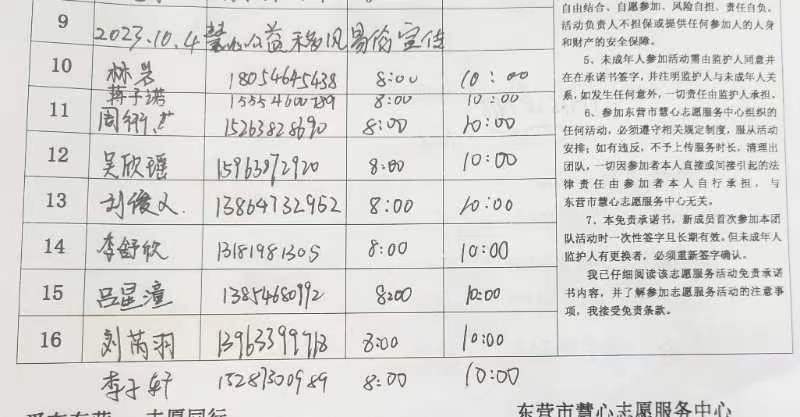 9
2023.10.4 慧心公益移风易俗宣传
10 林 18054645438 8:00 10:00
蒋子诺 8:00 10:00
11 周 15263828690 8:00 10:00
12 吴欣瑶 15963072920 8:00 10:00
13 刘俊义 13864732952 8:00 10:00
14 李舒欣 13181981305 8:00 10:00
15 吕星潼 13854680992 8:00 10:00
16 刘芮羽 13963399718 8:00 10:00
李子轩 15287300989 8:00 10:00
自由结合、自愿参加、风险自担、责任自负。
活动负责人不担保或提供任何参加人的人身
和财产的安全保障。
5、未成年人参加活动需由监护人同意并
在在承诺书签字，并注明监护人与未成年人关
系，如发生任何意外，一切责任由监护人承担。
6、参加东营市慧心志愿服务中心组织的
任何活动，必须遵守相关规定制度，服从活动
安排；如有违反，不予上传服务时长，清理出
团队，一切因参加者本人直接或间接引起的法
律责任由参加者本人自行承担，与
东营市慧心志愿服务中心无关。
7、本免责承诺书，新成员首次参加本团
队活动时一次性签字且长期有效。但未成年人
监护人有更换者，必须重新签字确认。
我已仔细阅读该志愿服务活动免责承诺
书内容，并了解参加志愿服务活动的注意事
项，我接受免责条款。
志愿同行
东营市慧心志愿服务中心